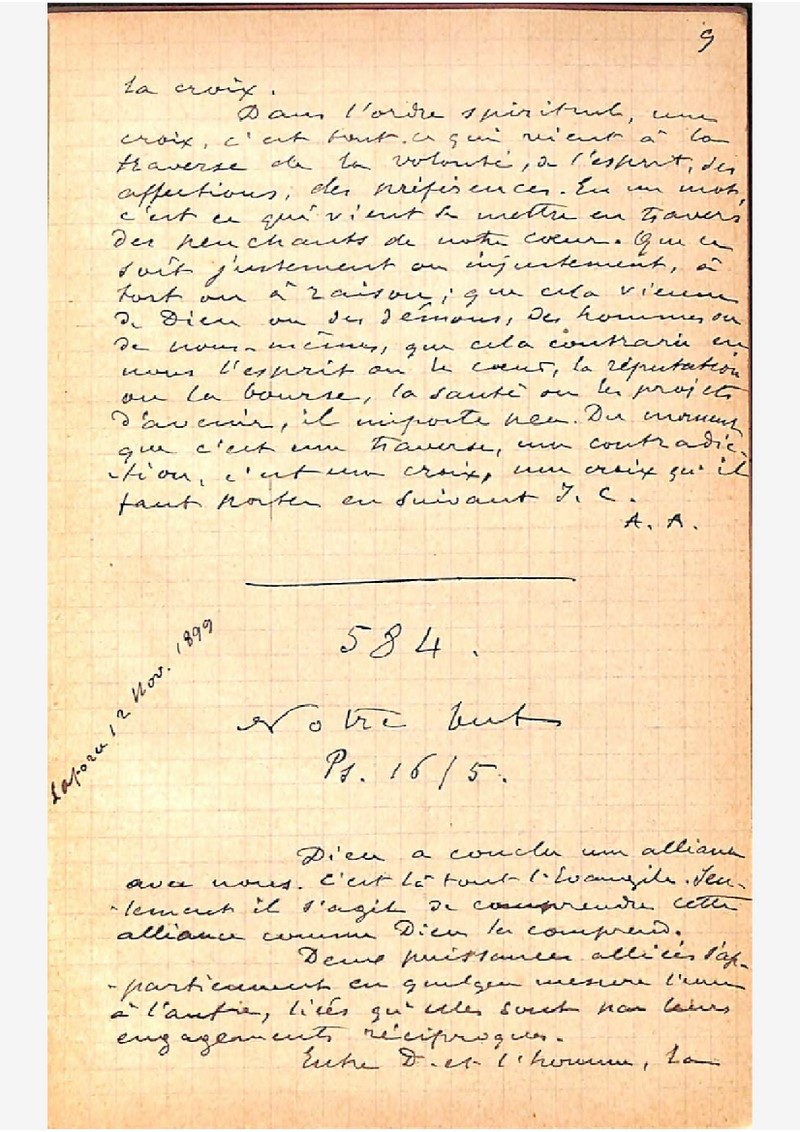 9
la croix.
Dans l'ordre spirituel, une
croix, c'est tout ce qui vient à la
traverse de la volonté, de l'esprit, des
affections, des préférences. En un mot,
c'est ce qui vient se mettre en travers
des penchants de notre cœur. Que ce
soit justement ou injustement, à
tort ou à raison; que cela vienne
de Dieu ou des démons, des hommes ou
de nous-mêmes, que cela contrarie en
nous l'esprit ou le cœur, la réputation
ou la bourse, la santé ou les projets
d'avenir, il importe peu. Du moment
que c'est une traverse, une contradic-
-tion, c'est une croix, une croix qu'il
faut porter en suivant J. C.
A. A.
584.
Lapoza 12 Nov. 1899
Notre but
Ps. 16/5.
Dieu a conclu une alliance
avec nous. C'est là tout l'Evangile. Seu-
-lement il s'agit de comprendre cette
alliance comme Dieu la comprend.
Deux puissances alliées s'ap-
-partiennent en quelque mesure l'une
à l'autre, liées qu'elles sont par leurs
engagements réciproques.
Entre D. et l'homme, la